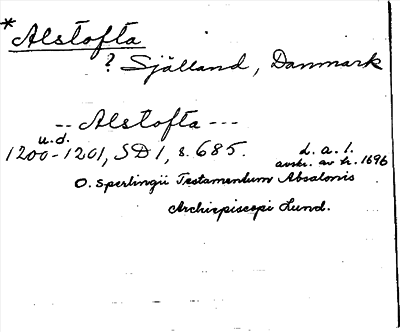 * Alstofta
? Själland, Danmark
-- Alstofta ---
u.d.
1200-1201, SD1, s. 685. d. a. 1.
avskr. av fr. 1696
O. Sperlingii Testamentum Absalonis
Archiepiscopi Lund.